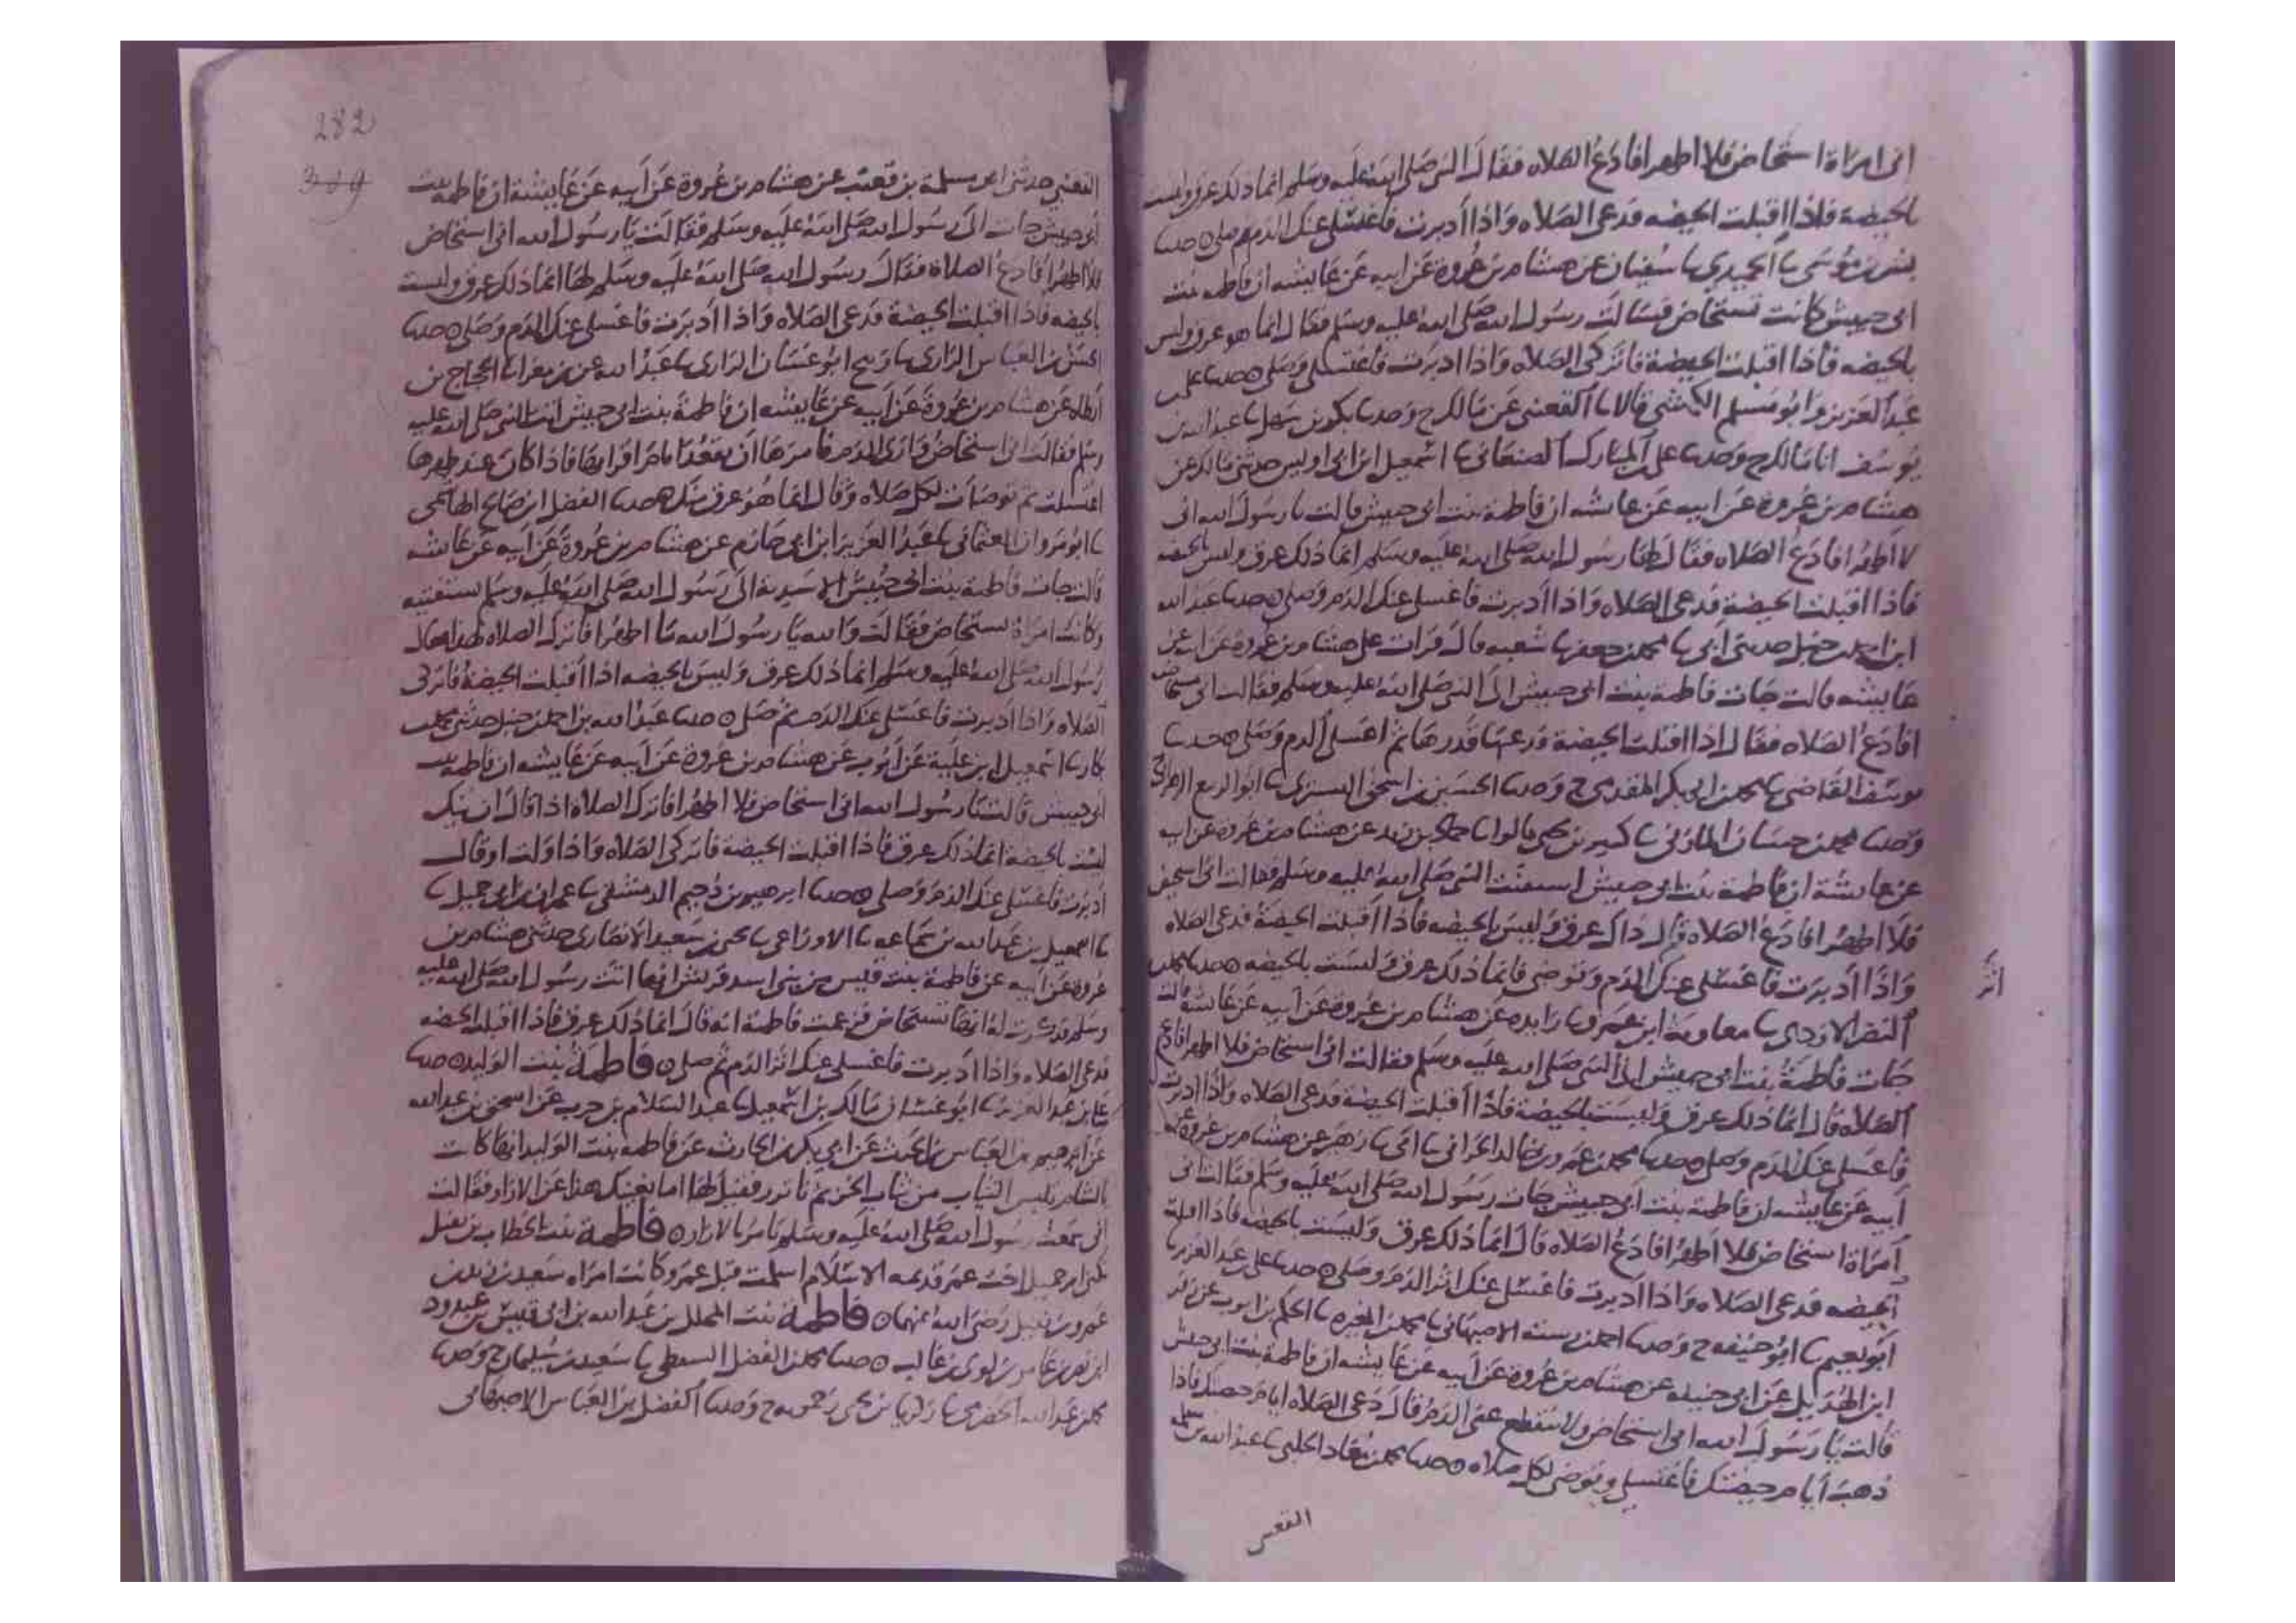 انى امراة استحاض فلا اطهر افادع الصلاه فقال النبى صلى الله عليه وسلم انما ذلك عرق وليست
بالحيضة فاذا اقبلت الحيضه فدعى الصلاه واذا ادبرت فاغتسلى عنك الدم ثم صلى ٥ حدثنا
بشر بن موسى نا الحميدي نا سفيان عن هشام بن عروة عن ابيه عن عايشه ان فاطمه بنت
ابى حبيش كانت تستحاض فسالت رسول الله صلى الله عليه وسلم فقال انما هو عرق وليس
بالحيضه فاذا اقبلت الحيضة فاتركى الصلاه واذا ادبرت فاغتسلى وصلى ٥ حدثنا على بن
عبد العزيز وابو مسلم الكشى قالا نا القعنبى عن مالك ح وحدثنا بكر بن سهل نا عبد الله بن
يوسف انا مالك ح وحدثنا على بن المبارك الصنعانى نا اسمعيل بن ابى اويس حدثنى مالك عن
هشام بن عروة عن ابيه عن عايشه ان فاطمة بنت ابى حبيش قالت يا رسول الله انى
لا اطهر افادع الصلاه فقال لها رسول الله صلى الله عليه وسلم انما ذلك عرق وليس بالحيضه
فاذا اقبلت الحيضة فدعى الصلاه واذا ادبرت فاغسلى عنك الدم وصلى ٥ حدثنا عبد الله
ابن احمد بن حنبل حدثنى ابى نا محمد بن جعفر نا شعبه قال قرات على هشام بن عروة عن ابيه عن
عايشه قالت جات فاطمة بنت ابى حبيش الى النبى صلى الله عليه وسلم فقالت انى استحاض
افادع الصلاه فقال اذا اقبلت الحيضة فدعها قدرها ثم اغسلى الدم وصلى ٥ حدثنا
يوسف القاضى نا محمد بن ابى بكر المقدمى ح وحدثنا الحسين بن اسحق التسترى نا ابو الربيع الزهرانى
وحدثنا محمد بن حسان المازنى نا كثير بن يحيى قالوا نا حماد بن زيد عن هشام بن عروة عن ابيه
عن عايشة ان فاطمة بنت ابى حبيش استفتت النبى صلى الله عليه وسلم فقالت انى استحاض
فلا اطهر افادع الصلاه قال ذاك عرق وليس بالحيضه فاذا اقبلت الحيضة فدعى الصلاه
واذا ادبرت فاغسلى عنك الدم وتوضى فانما ذلك عرق وليست بالحيضه ٥ حدثنا محمد بن
اثر
النضر الازدى نا معاوية ابن عمرو نا زايده عن هشام بن عروة عن ابيه عن عايشة قالت
جات فاطمة بنت ابى حبيش الى النبى صلى الله عليه وسلم فقالت انى استحاض فلا اطهر افادع
الصلاه قال انما ذلك عرق وليست بالحيضة فاذا اقبلت الحيضة فدعى الصلاه واذا ادبرت
فاغسلى عنك الدم وصلى ٥ حدثنا محمد بن عمرو بن خالد الحرانى نا ابى نا زهير عن هشام بن عروة عن
ابيه عن عايشه ان فاطمة بنت ابى حبيش جات رسول الله صلى الله عليه وسلم فقالت انى
امراة استحاض فلا اطهر افادع الصلاه قال انما ذلك عرق وليست بالحيضه فاذا اقبلت
الحيضه فدعى الصلاه واذا ادبرت فاغسلى عنك اثر الدم وصلى ٥ حدثنا على بن عبد العزيز نا
ابو نعيم نا ابو حنيفه ح وحدثنا احمد بن رسته الاصبهانى نا محمد بن المغيره نا الحكم بن ايوب عن زفر
ابن الهذيل عن ابى حنيفه عن هشام بن عروة عن ابيه عن عايشه ان فاطمة بنت ابى حبيش
قالت يا رسول الله انى استحاض ولا ينقطع عنى الدم قال دعى الصلاه ايام حيضتك فاذا
ذهبت ايام حيضتك فاغتسلى وتوضى لكل صلاه ٥ حدثنا محمد بن معاذ الحلبى نا عبد الله بن مسلمه
القعنبى
282
القعنبى حدثنى ابن مسلمة بن قعنب عن هشام بن عروة عن ابيه عن عايشة ان فاطمه بنت
ابى حبيش جات الى رسول الله صلى الله عليه وسلم فقالت يا رسول الله انى استحاض
فلا اطهر افادع الصلاة فقال رسول الله صلى الله عليه وسلم لها انما ذلك عرق وليست
بالحيضه فاذا اقبلت الحيضة فدعى الصلاه واذا ادبرت فاغسلى عنك الدم وصلى ٥ حدثنا
الحسن بن العباس الرازى نا زنيج ابو غسان الرازى نا عبد الله عن بن مغرا نا الحجاج بن
ارطاه عن هشام بن عروة عن ابيه عن عايشه ان فاطمة بنت ابى حبيش اتت النبى صلى الله عليه
وسلم فقالت انى استحاض وارى الدم فامرها ان تقعد ايام اقرايها فاذا كان عند طهرها
اغتسلت ثم توضات لكل صلاه وقال انما هو عرق ٥ حدثنا الفضل ابن صالح الهاشمى
نا ابو مروان العثمانى نا عبد العزيز ابن ابى حازم عن هشام بن عروة عن ابيه عن عايشه
قالت جات فاطمة بنت ابى حبيش الاسدية الى رسول الله صلى الله عليه وسلم تستفتيه
وكانت امراة تستحاض فقالت والله يا رسول الله ما اطهر افاترك الصلاه لهذا فقال
رسول الله صلى الله عليه وسلم انما ذلك عرق وليس بالحيضه اذا اقبلت الحيضة فاتركى
الصلاه واذا ادبرت فاغسلى عنك الدم ثم صلى ٥ حدثنا عبد الله بن احمد بن حنبل حدثنى محمد بن
بكار نا اسمعيل ابن علية عن ايوب عن هشام بن عروة عن ابيه عن عايشه ان فاطمه بنت
ابى حبيش قالت يا رسول الله انى استحاض فلا اطهر افاترك الصلاه اذا قال ان تيك
ليست بالحيضة انما ذلك عرق فاذا اقبلت الحيضة فاتركى الصلاه واذا ولت او قال
ادبرت فاغسلى عنك الدم وصلى ٥ حدثنا ابرهيم بن دحيم الدمشقى نا عمران بن ابى جميل نا
نا اسمعيل بن عبد الله بن سماعه نا الاوزاعى نا يحيى بن سعيد الانصارى حدثنى هشام بن
عروة عن ابيه عن فاطمة بنت قيس من بنى اسد قريش انها اتت رسول الله صلى الله عليه
وسلم فذكرت له انها تستحاض فزعمت فاطمة انه قال انما ذلك عرق فاذا اقبلت الحيضه
فدعى الصلاه واذا ادبرت فاغسلى عنك اثر الدم ثم صلى ٥ فاطمة بنت الوليد ٥ حدثنا
على بن عبد العزيز نا ابو غسان مالك بن اسمعيل نا عبد السلام بن حرب عن اسحق بن عبد الله
عن ابرهيم بن العباس بن الحرث عن ابى بكر بن الحارث عن فاطمه بنت الوليد انها كانت
بالشام تلبس الثياب من ثياب الخز ثم تاتزر فقيل لها اما يغنيك هذا عن الازار فقالت
انى سمعت رسول الله صلى الله عليه وسلم يامر بالازار ٥ فاطمة بنت الخطاب بن نفيل
تكنى ام جميل اخت عمر قديمه الاسلام اسلمت قبل عمر وكانت امراه سعيد بن زيد بن
عمرو بن نفيل رضى الله عنهما ٥ فاطمة بنت المجلل بن عبد الله بن ابى قيس بن عبدود
ابن نصر بن عامر بن لوى بن غالب ٥ حدثنا محمد بن الفضل السقطى نا سعيد بن سليمان ح وحدثنا
محمد بن عبد الله الحضرمى نا زكريا بن يحيى زحمويه ح وحدثنا الفضل بن العباس الاصبهانى